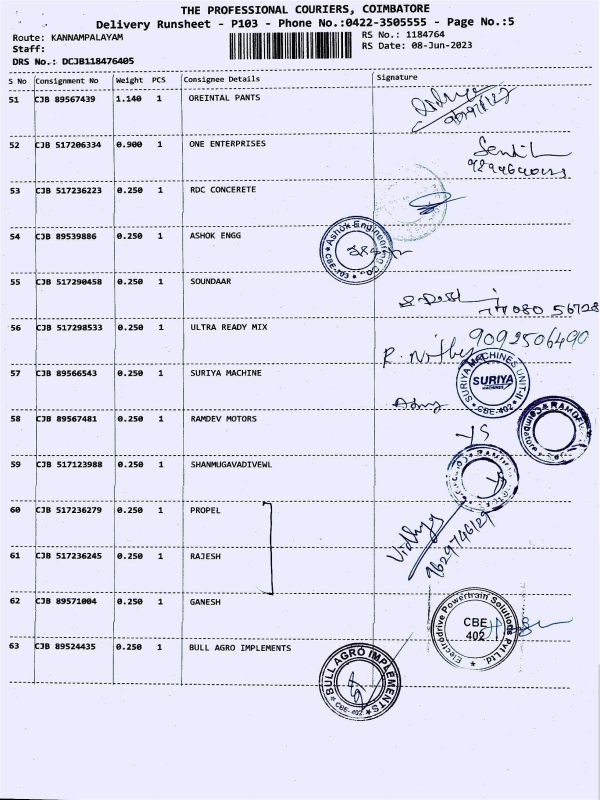 THE PROFESSIONAL COURIERS, COIMBATORE
Delivery Runsheet - P103 - Phone No.:0422-3505555 - Page No.:5
Route: KANNAMPALAYAM RS No.: 1184764
Staff: RS Date: 08-Jun-2023
DRS No.: DCJB118476405
S No Consignment No Weight PCS Consignee Details Signature
51 CJB 89567439 1.140 1 OREINTAL PANTS
52 CJB 517206334 0.900 1 ONE ENTERPRISES
53 CJB 517236223 0.250 1 RDC CONCERETE
54 CJB 89539886 0.250 1 ASHOK ENGG
Ashok Engineering Co
CBE-103
55 CJB 517290458 0.250 1 SOUNDAAR
56 CJB 517298533 0.250 1 ULTRA READY MIX
9092506490
57 CJB 89566543 0.250 1 SURIYA MACHINE
SURIYA MACHINES UNIT-II
SURIYA
MACHINES
CBE-402
58 CJB 89567481 0.250 1 RAMDEV MOTORS
RAMDEV
59 CJB 517123988 0.250 1 SHANMUGAVADIVEWL
60 CJB 517236279 0.250 1 PROPEL
Vidhya
9629746127
61 CJB 517236245 0.250 1 RAJESH
62 CJB 89571004 0.250 1 GANESH
Electrodrive Powertrain Solutions Pvt Ltd.
CBE
402
63 CJB 89524435 0.250 1 BULL AGRO IMPLEMENTS
BULL AGRO IMPLEMENTS
CBE-402